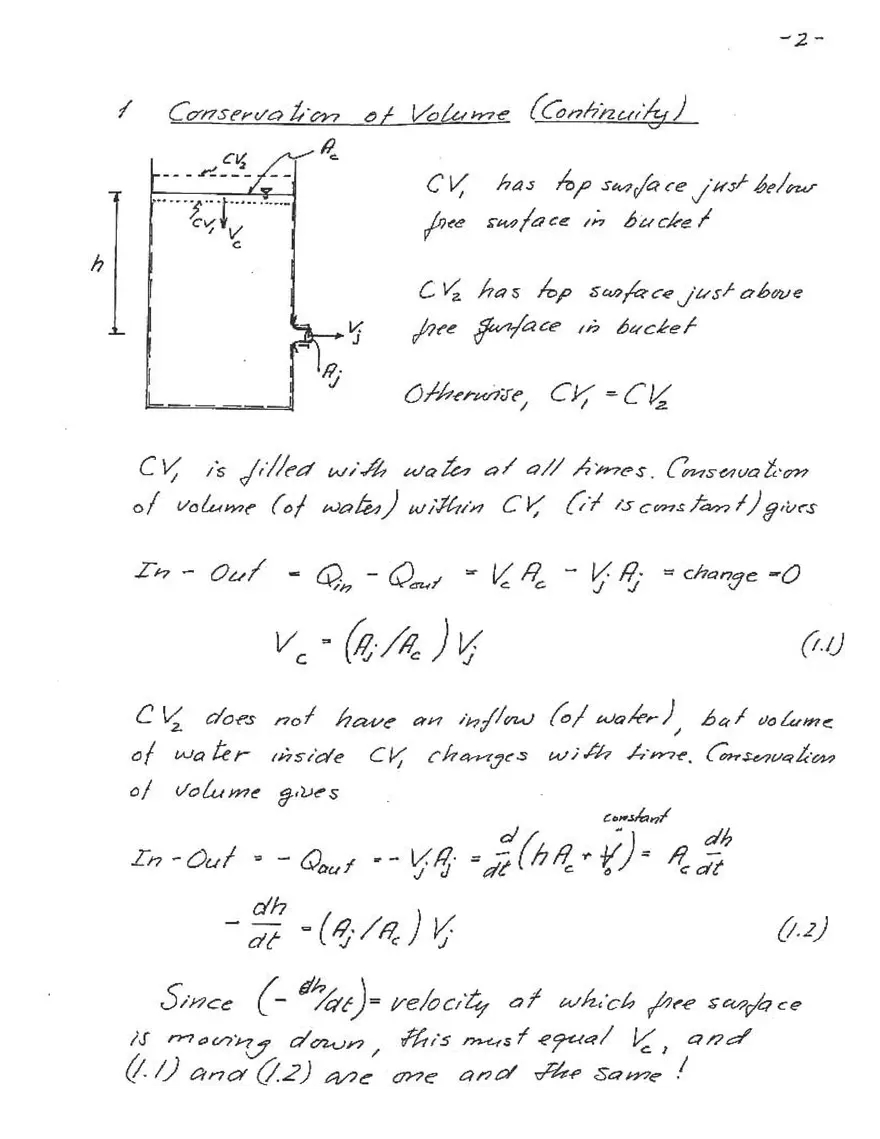 -2-
1 Conservation of Volume (Continuity)
CV₂
A_c
CV₁
V_c
h
V_j
A_j
CV₁ has top surface just below
free surface in bucket
CV₂ has top surface just above
free surface in bucket
Otherwise, CV₁ = CV₂
CV₁ is filled with water at all times. Conservation
of volume (of water) within CV₁ (it is constant) gives
In - Out = Q_in - Q_out = V_c A_c - V_j A_j = change = 0
V_c = (A_j/A_c) V_j (1.1)
CV₂ does not have an inflow (of water), but volume
of water inside CV₁ changes with time. Conservation
of volume gives
constant
In - Out = - Q_out = - V_j A_j = d/dt (h A_c + V₀) = A_c dh/dt
- dh/dt = (A_j/A_c) V_j (1.2)
Since (- dh/dt) = velocity at which free surface
is moving down, this must equal V_c, and
(1.1) and (1.2) are one and the same!